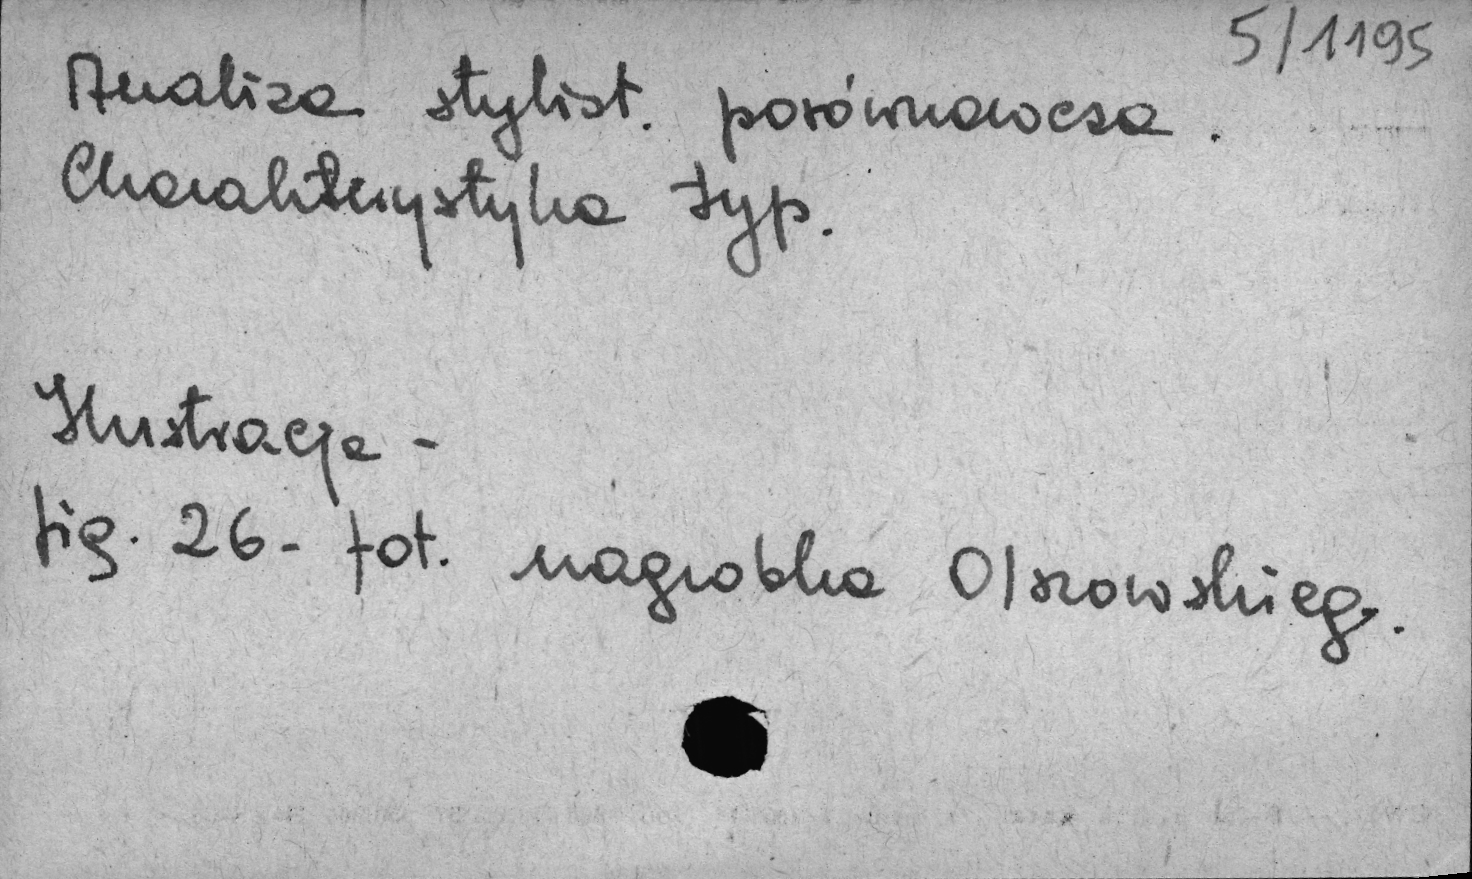 5/1195
Analiza stylist. porównawcza.
Charakterystyka typ.
Ilustracje -
fig. 26 - fot. nagrobka Olszowskieg.